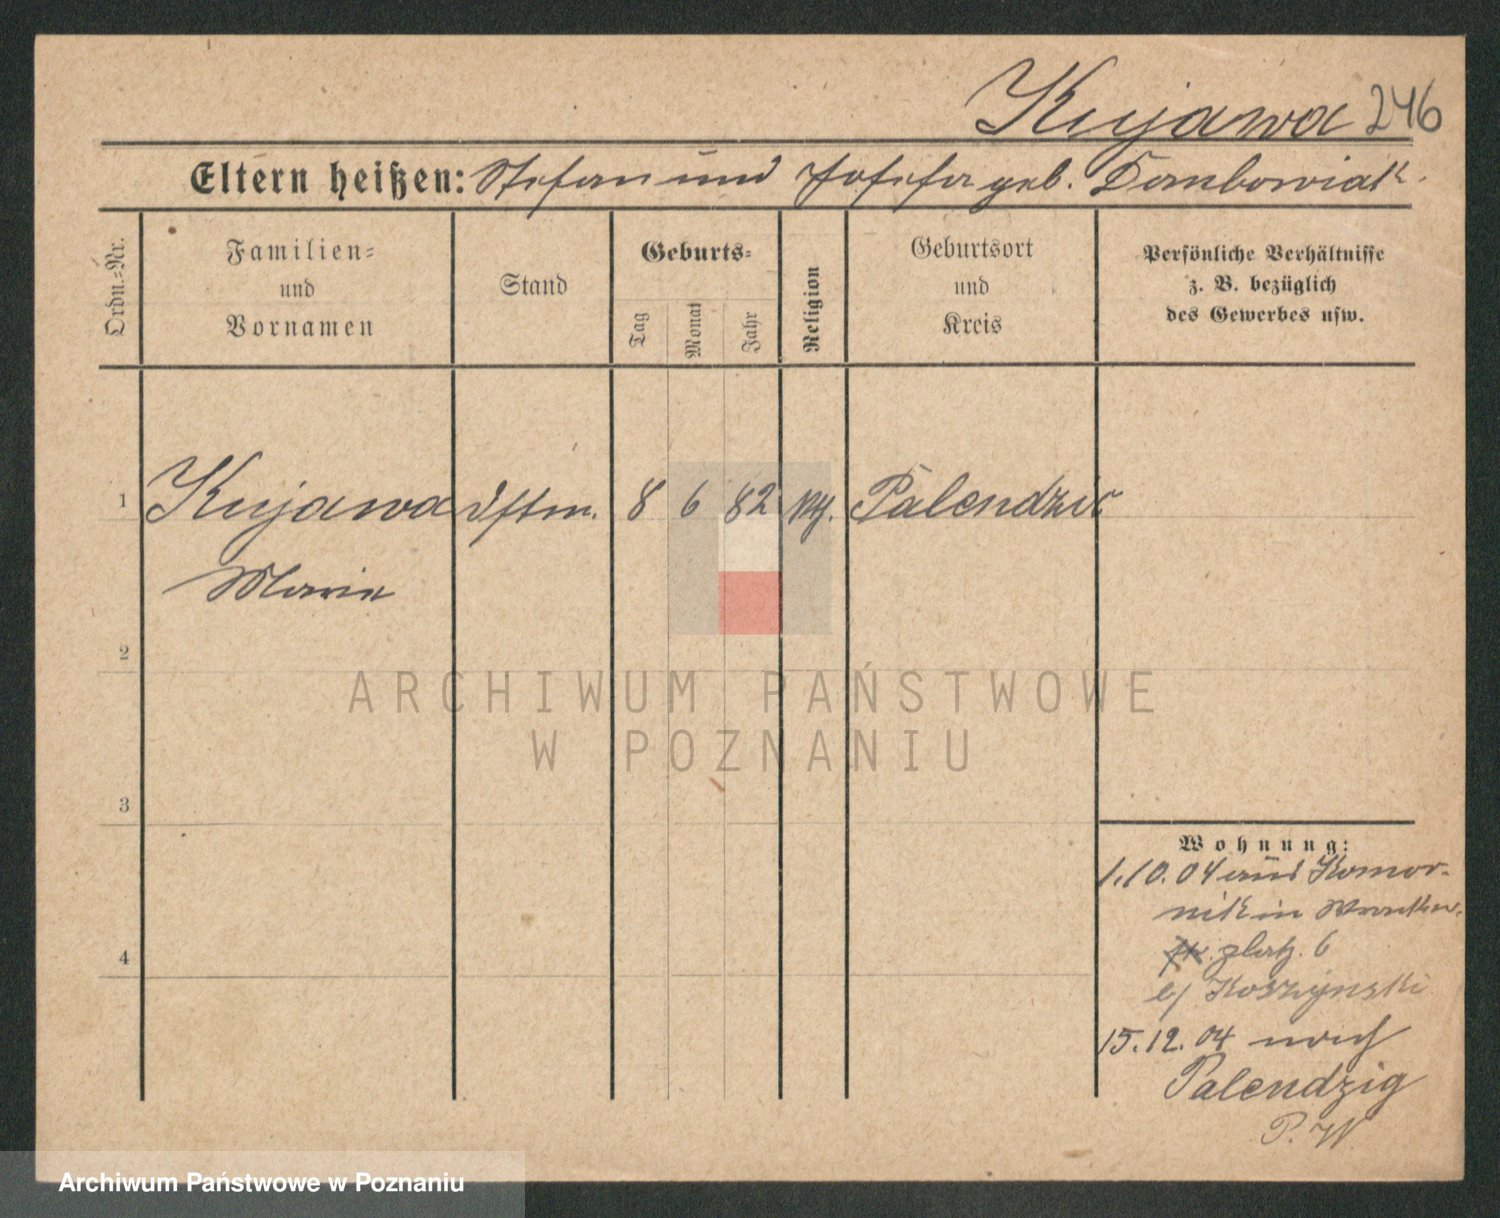 Kujawa 246
Eltern heißen: Stefan und Josefa geb. Dombowiak.
Ordn.-Nr.
Familien-
und
Vornamen
Stand
Geburts-
Tag
Monat
Jahr
Religion
Geburtsort
und
Kreis
Persönliche Verhältnisse
z. B. bezüglich
des Gewerbes usw.
1 Kujawa 8 6 82 Palendzic
Marie
2
ARCHIWUM PAŃSTWOWE
W POZNANIU
3
Wohnung:
1.10.04 aus Komor-
nik in
platz. 6
b/ Koszynski
4
15.12.04 nach
Palendzig
P. W.
Archiwum Państwowe w Poznaniu